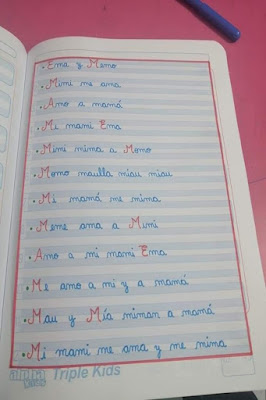 • Ema y Memo
• Mimi me ama
• Amo a mamá
• Mi mami Ema
• Mimi mima a Momo
• Momo maulla miau miau
• Mi mamá me mima
• Meme ama a Mimi
• Amo a mi mami Ema
• Me amo a mi y a mamá
• Mau y Mía miman a mamá
• Mi mami me ama y me mima
Triple Kids